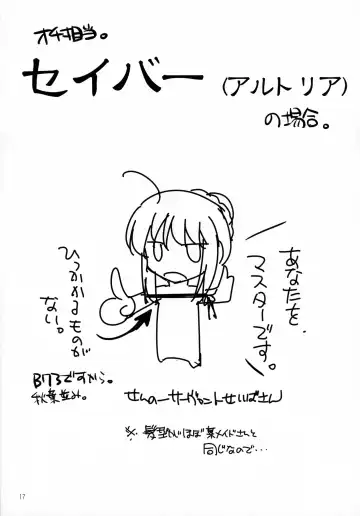 オチ担当。
セイバー(アルトリア)
の場合。
あなたを、
マスターです。
ひっかかるものが
ない。
B73ですから。
秋葉並み。
せんのーサーヴァントせいばさん
※髪型がほぼ某メイドさんと
同じなので・・・
17